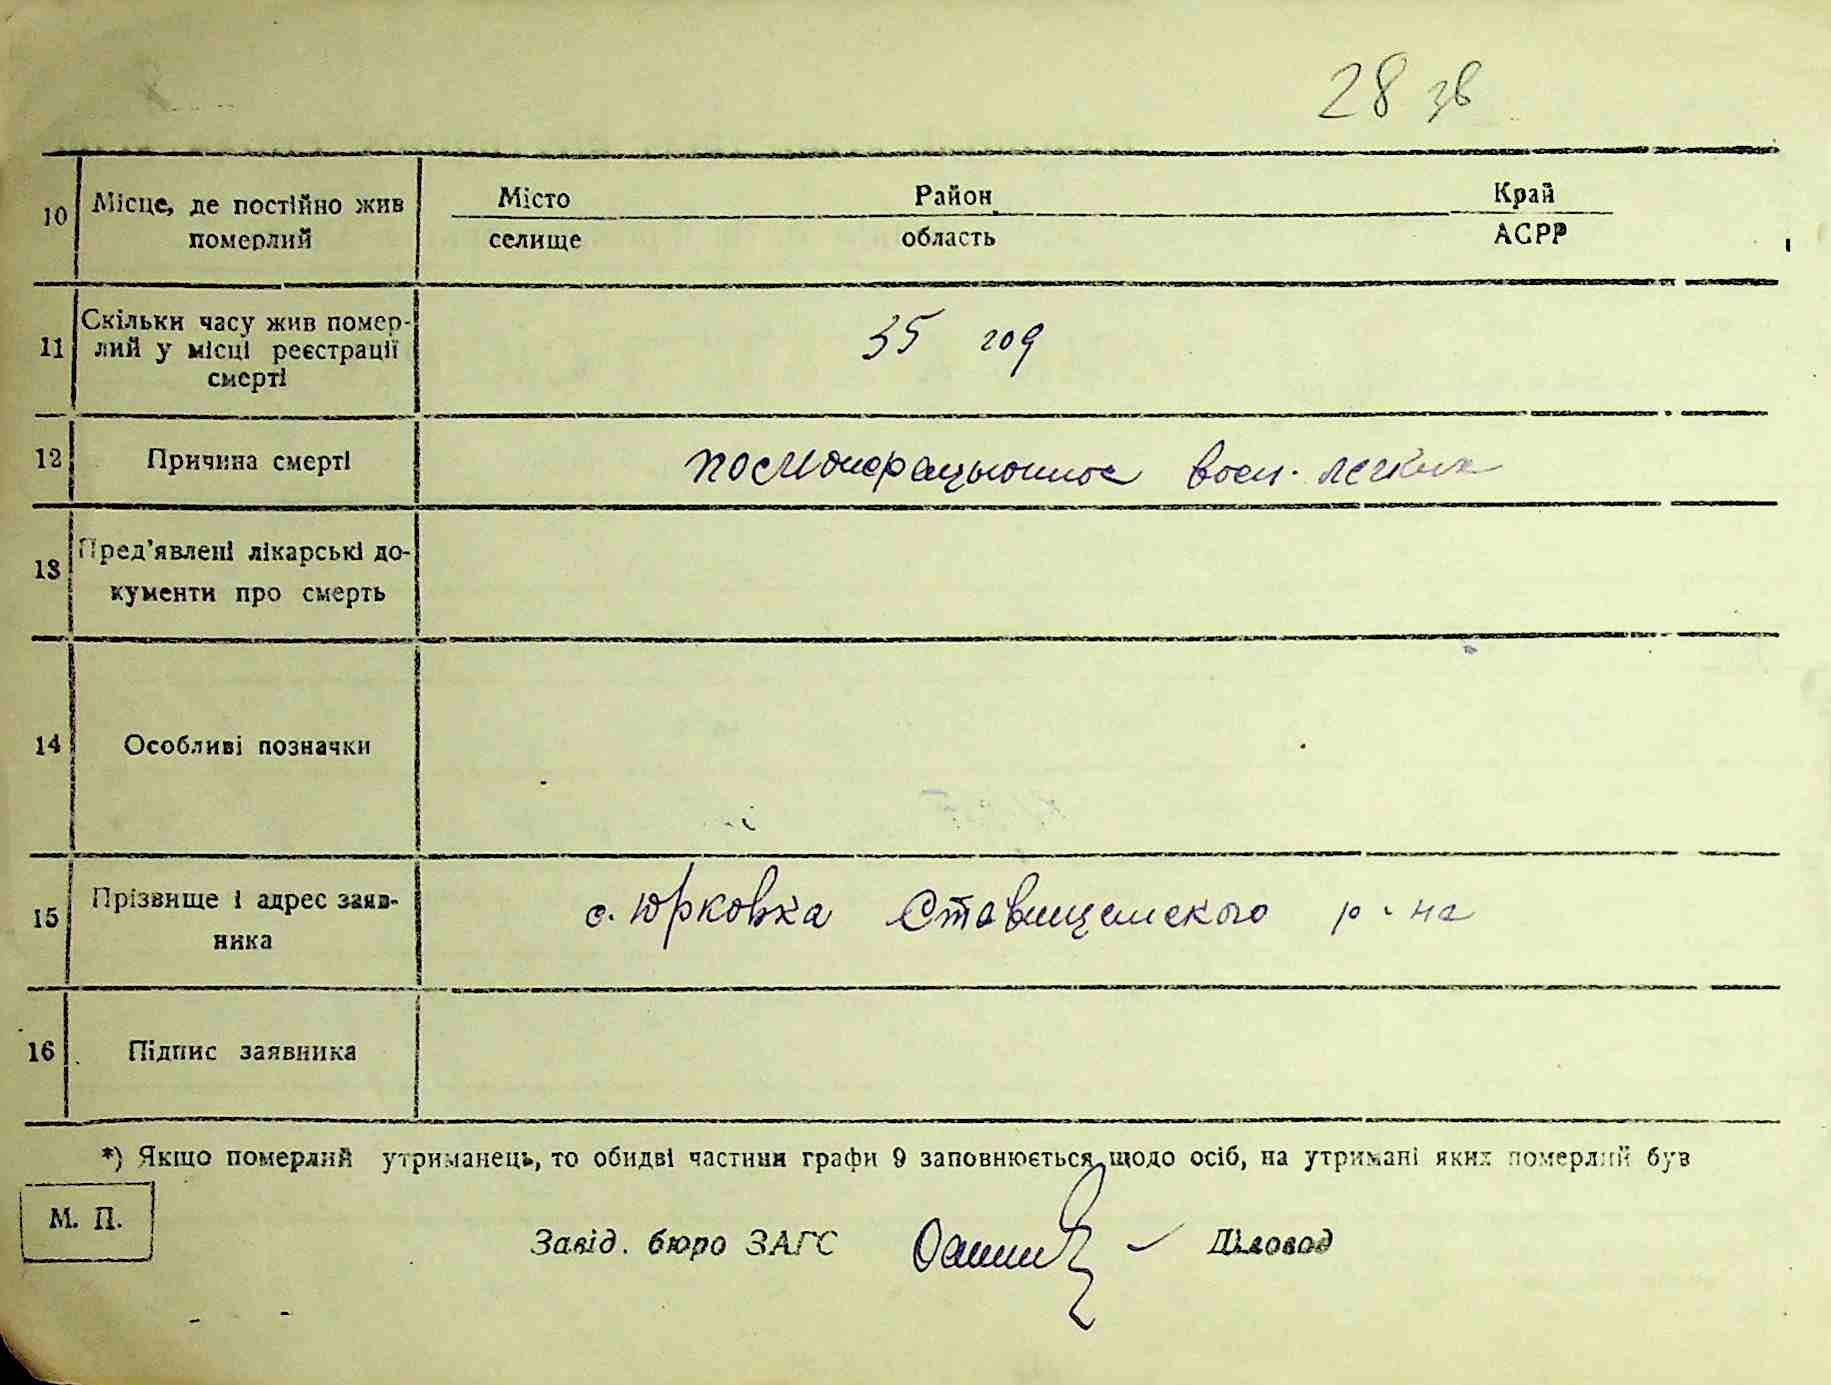 28 зв
10 Місце, де постійно жив Місто Район Край
померлий селище область АСРР
Скільки часу жив помер-
11 лий у місці реєстрації 35 год
смерті
12 Причина смерті послиоперацыонное восп. легких
13 Пред'явлені лікарські до-
кументи про смерть
14 Особливі позначки
15 Прізвище і адрес заяв- с. Юрковка Ставищенского р-на
ника
16 Підпис заявника
*) Якщо померлий утриманець, то обидві частини графи 9 заповнюється щодо осіб, на утримані яких померлий був
М. П.
Завід. бюро ЗАГС Діловод